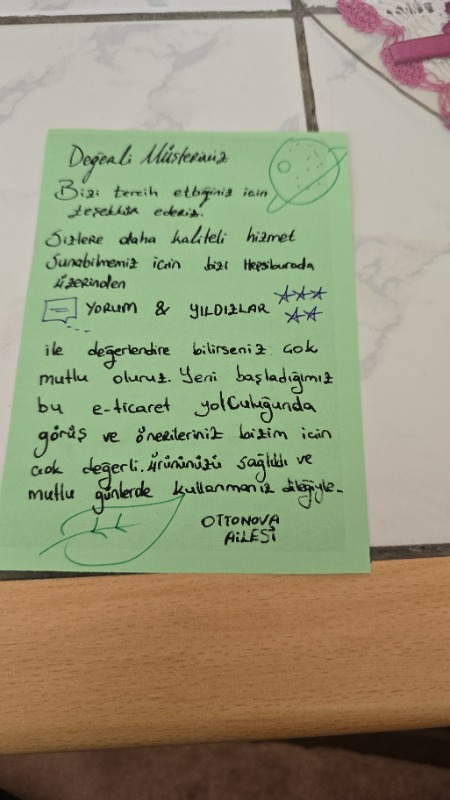 Değerli Müşterimiz
Bizi tercih ettiğiniz için
teşekkür ederiz.
Sizlere daha kaliteli hizmet
sunabilmemiz için bizi Hepsiburada
üzerinden
YORUM & YILDIZLAR
ile değerlendire bilirseniz çok
mutlu oluruz. Yeni başladığımız
bu e-ticaret yolculuğunda
görüş ve önerileriniz bizim için
çok değerli. ürününüzü sağlıklı ve
mutlu günlerde kullanmanız dileğiyle.
OTTONOVA
AİLESİ